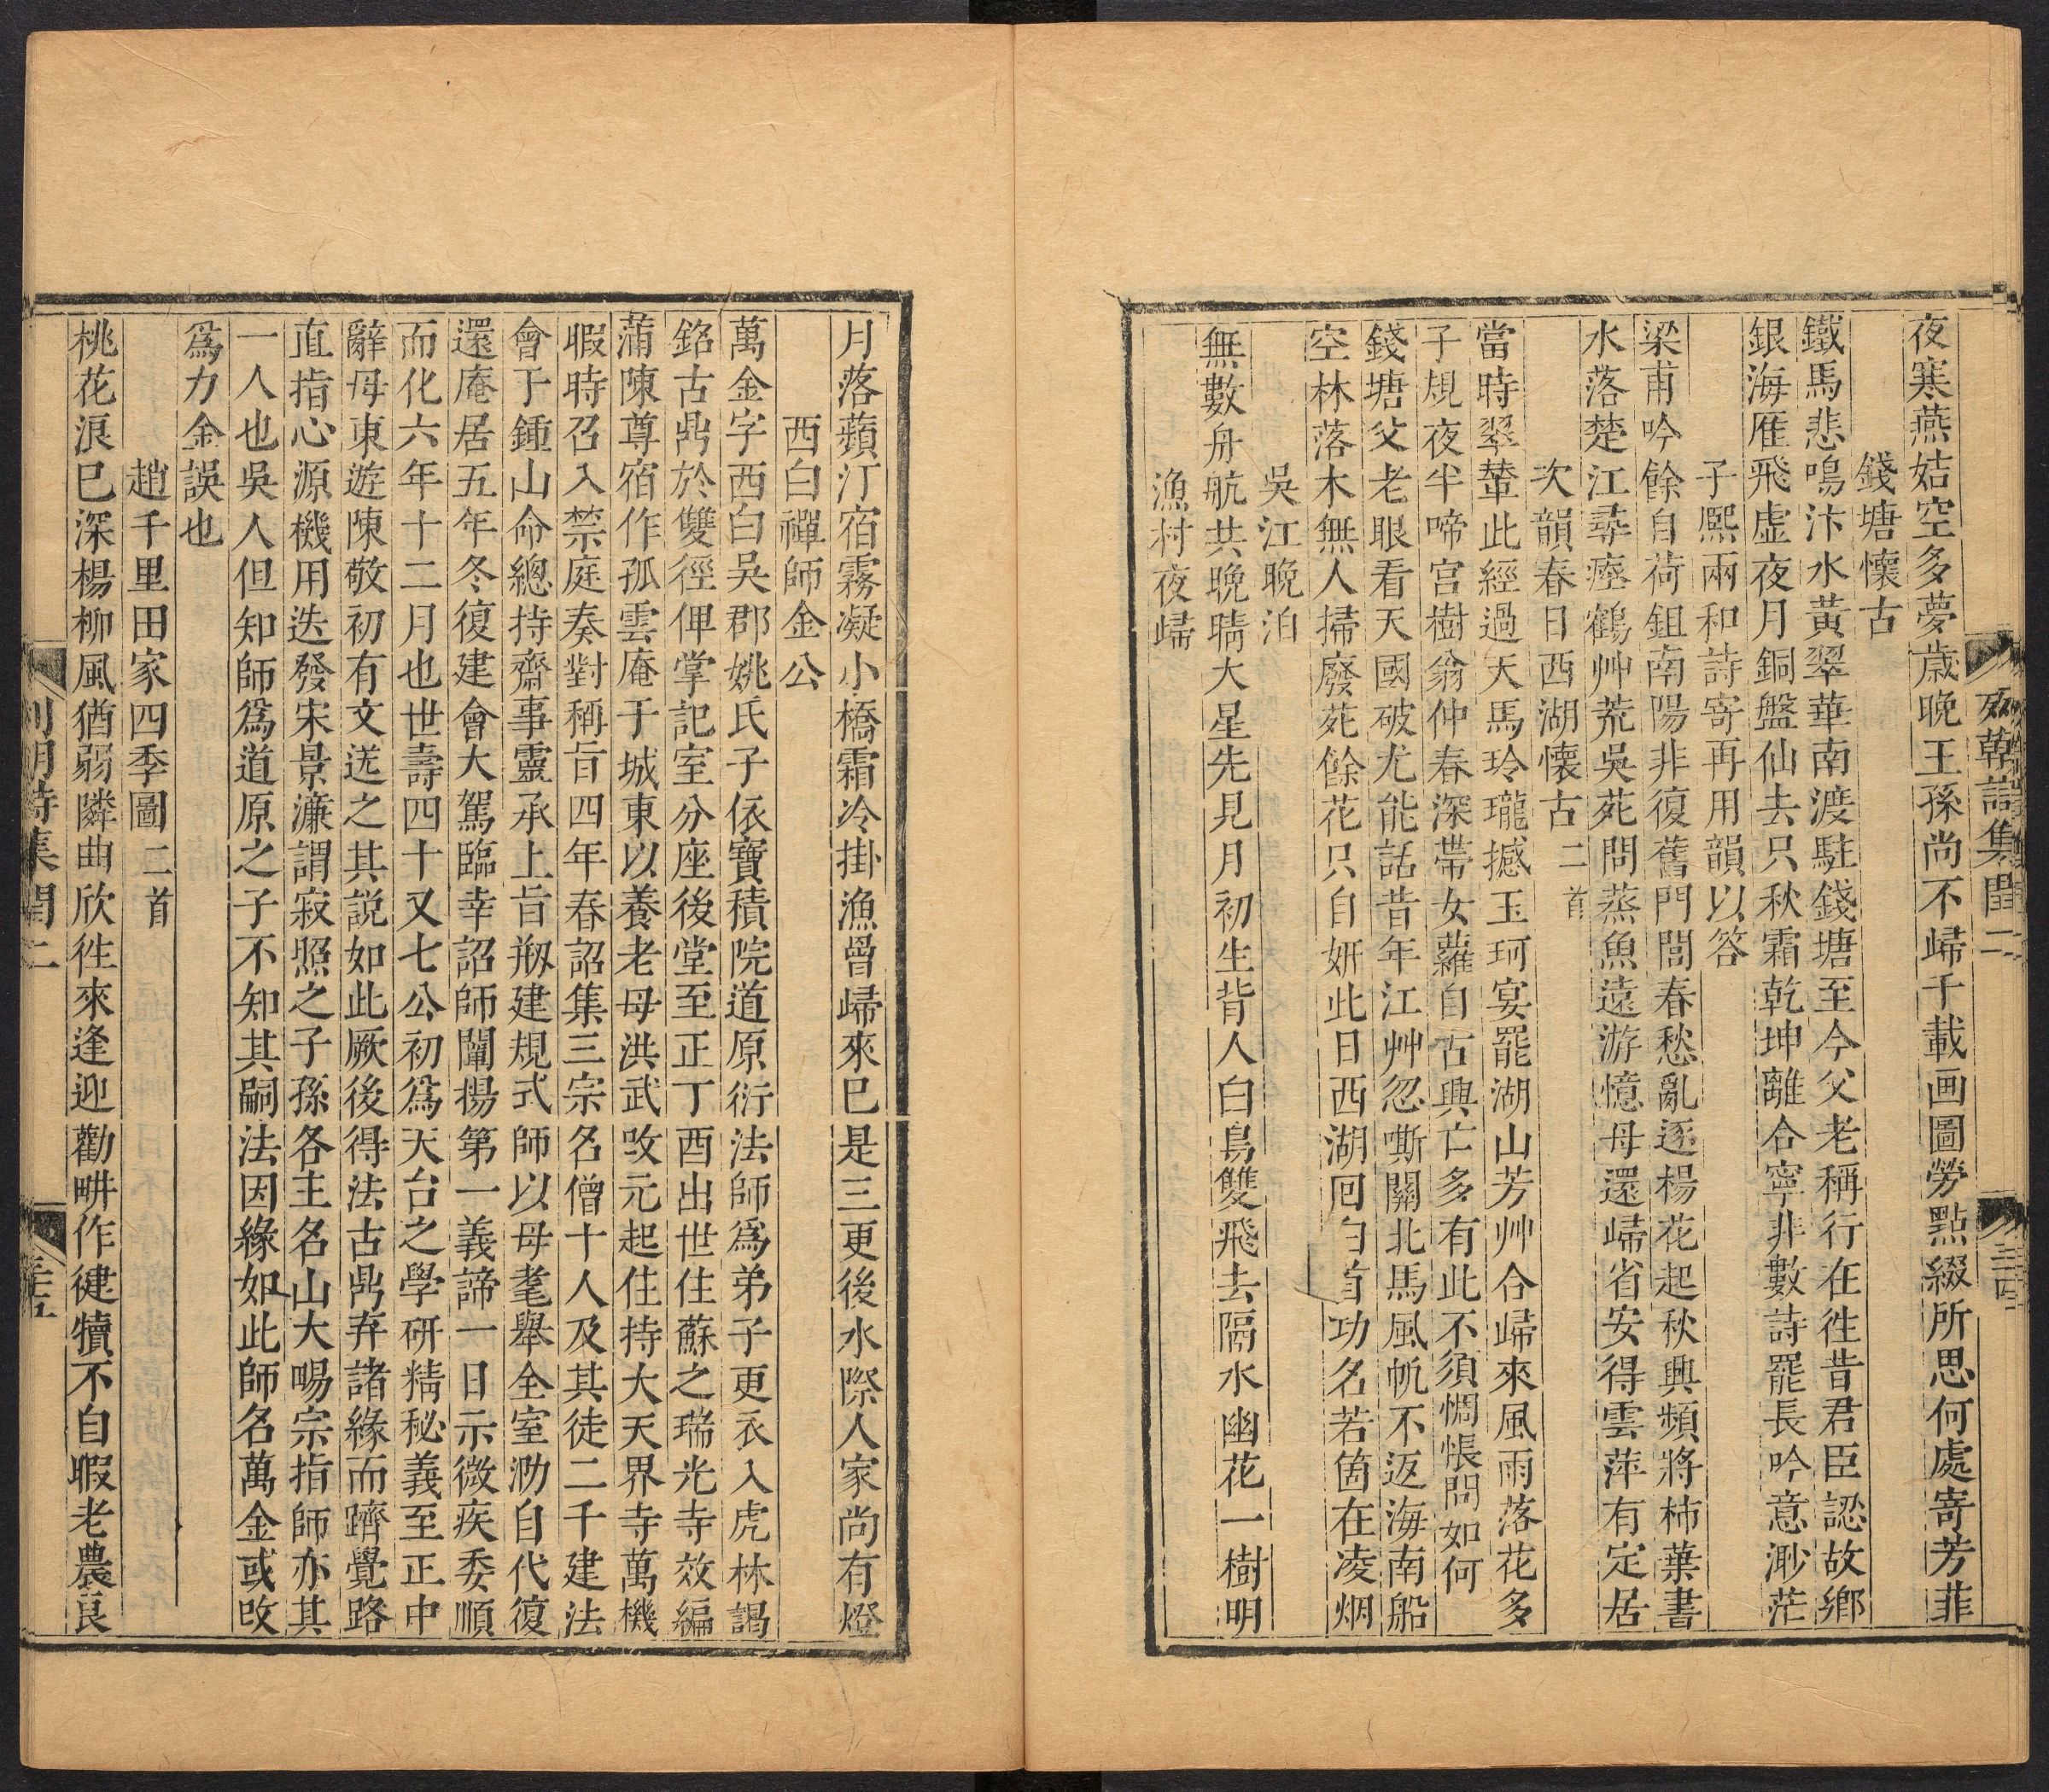 夜寒燕姞空多夢歲晚王孫尚不歸千載画圖勞點綴所思何處寄芳菲
錢塘懷古
鐵馬悲鳴汴水黃翠華南渡駐錢塘至今父老稱行在徃昔君臣認故鄉
銀海雁飛虛夜月銅盤仙去只秋霜乾坤離合寧非數詩罷長吟意渺茫
子熙兩和詩寄再用韻以答
梁甫吟餘自荷鉏南陽非復舊門閭春愁亂逐楊花起秋興頻將柿葉書
水落楚江尋瘞鶴艸荒吳苑問蒸魚遠游憶母還歸省安得雲萍有定居
次韻春日西湖懷古二首
當時翠輦此經過天馬玲瓏撼玉珂宴罷湖山芳艸合歸來風雨落花多
子規夜半啼宫樹翁仲春深帶女蘿自古興亡多有此不須惆悵問如何
錢塘父老眼看天國破尤能話昔年江艸忽嘶關北馬風帆不返海南船
空林落木無人掃廢苑餘花只自妍此日西湖囘白首功名若箇在凌烟
吳江晚泊
無數舟航共晚晴大星先見月初生背人白鳥雙飛去隔水幽花一樹明
漁村夜歸
列朝詩集閏二
三十四
月落蘋汀宿霧凝小橋霜冷掛漁罾歸來已是三更後水際人家尚有燈
西白禪師金公
萬金字西白吳郡姚氏子依寶積院道原衍法師爲弟子更衣入虎林謁
銘古鼎於雙徑俾掌記室分座後堂至正丁酉出世住蘇之瑞光寺效編
蒲陳尊宿作孤雲庵于城東以養老母洪武攺元起住持大天界寺萬機
暇時召入禁庭奏對稱旨四年春詔集三宗名僧十人及其徒二千建法
會于鍾山命總持齋事靈承上旨剏建規式師以母耄舉全室泐自代復
還庵居五年冬復建會大駕臨幸詔師闡揚第一義諦一日示微疾委順
而化六年十二月也世壽四十又七公初爲天台之學研精秘義至正中
辭母東遊陳敬初有文送之其説如此厥後得法古鼎弃諸緣而躋覺路
直指心源機用迭發宋景濂謂寂照之子孫各主名山大暢宗指師亦其
一人也吳人但知師爲道原之子不知其嗣法因緣如此師名萬金或攺
爲力金誤也
趙千里田家四季圖二首
桃花浪已深楊柳風猶弱隣曲欣徃來逢迎勸畊作健犢不自暇老農良
列朝詩集閏二
三十五